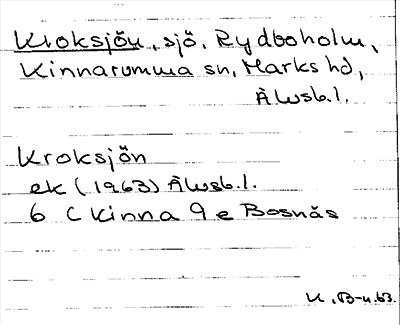 Kroksjön, sjö, Rydboholm,
Kinnarumma sn, Marks hd,
Älvsb.l.
Kroksjön
ek (1963) Älvsb.l.
6 C Kinna 9 e Bosnäs